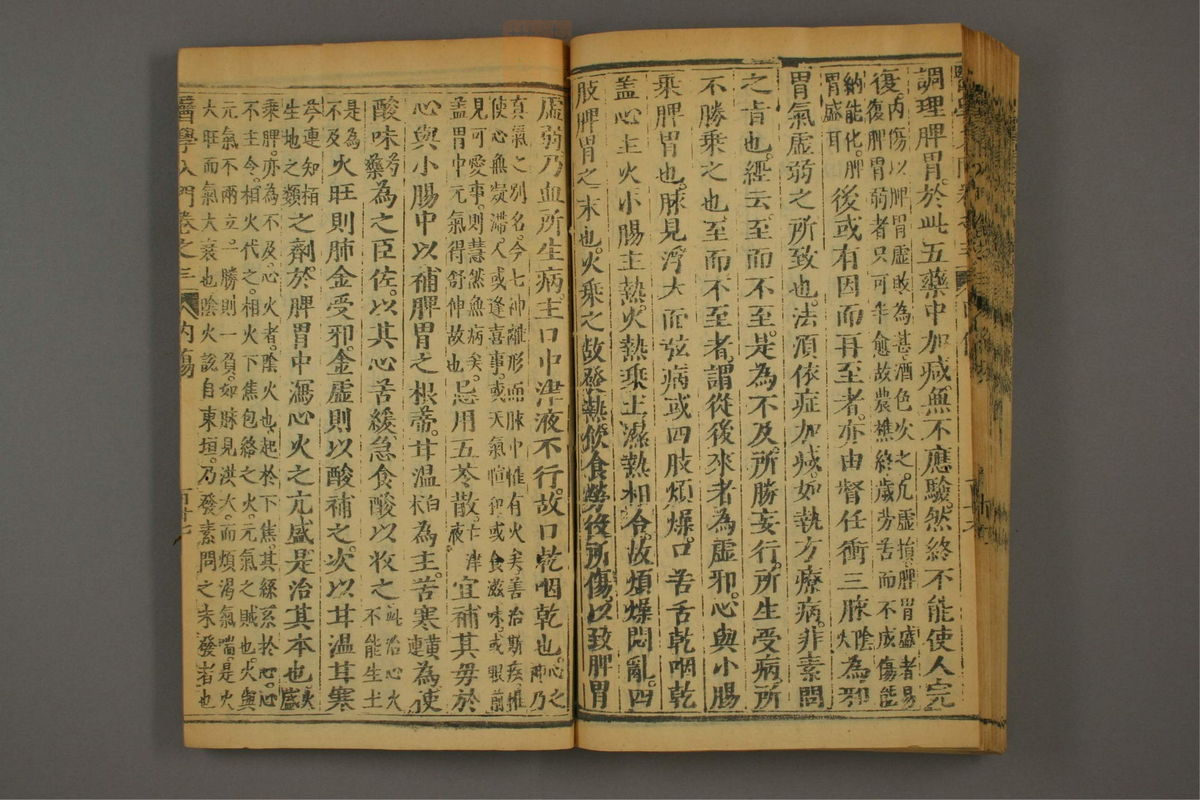 調理脾胃於此五藥中加减無不應驗然終不能使人完
復内傷以脾胃虛敗為甚酒色次之凡虛損脾胃盛者易
復脾胃弱者只可半愈故農樵終歲勞苦而不成傷能
納能化脾
胃盛耳後或有因而再至者亦由督任衝三脉陰火為邪
胃氣虛弱之所致也法須依症加减如執方療病非素問
之肯也經云至而不至是為不及所勝妄行所生受病所
不勝乘之也至而不至者謂從後來者為虛邪心與小腸
乘脾胃也脉見浮大而弦病或四肢煩燥口苦舌乾咽乾
盖心主火小腸主熱火熱乘土濕熱相合故煩燥悶亂四
肢脾胃之末也火乘之故發熱飲食勞役所傷以致脾胃
虛弱乃血所生病主口中津液不行故口乾咽乾也心之神乃
真氣之别名今七神離形而脉中惟有火矣善治斯疾惟
使心無凝滯人或逢喜事或天氣暄和或食滋味或眼前
見可愛事則慧然無病矣
盖胃中元氣得舒伸故也忌用五苓散亡津液宜補其毋於
心與小腸中以補脾胃之根蒂甘温白术為主苦寒黄連為使
酸味芍藥為之臣佐以其心苦緩急食酸以收之此治心火不能生土
是為
不及火旺則肺金受邪金虛則以酸補之次以甘温甘寒
芩連知栢
生地之類之劑於脾胃中瀉心火之亢盛是治其本也火盛
乘脾亦為不及心火者陰火也起於下焦其綵系於心心
不主令相火代之相火下焦包絡之火元氣之賊也火與
元氣不兩立一勝則一負如脉見洪大而煩渴氣喘是火
大旺而氣大衰也陰火該自東垣乃發素問之未發者也
醫學入門卷之三 内傷 百廿七